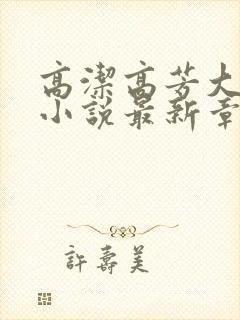 高潔高芳大
小說最新章
許壽美